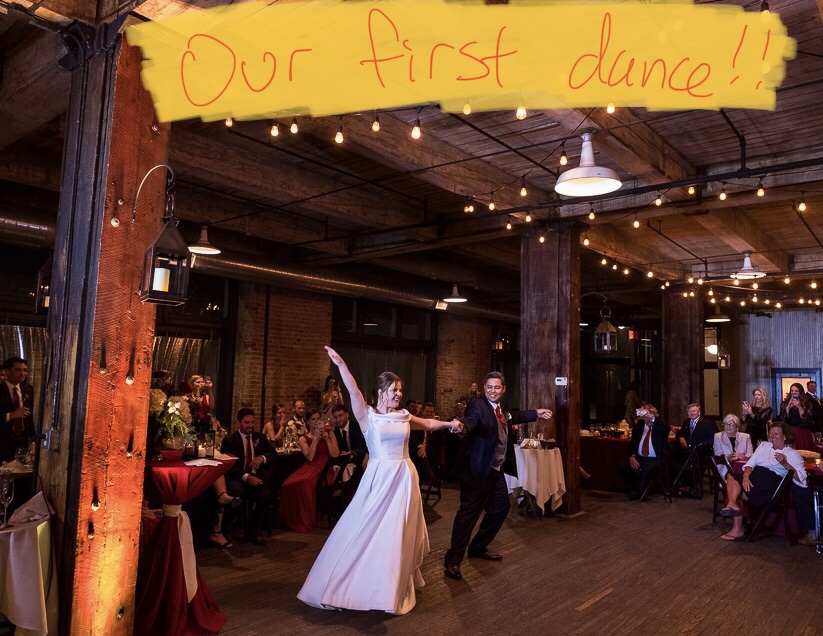 Our first dance!!